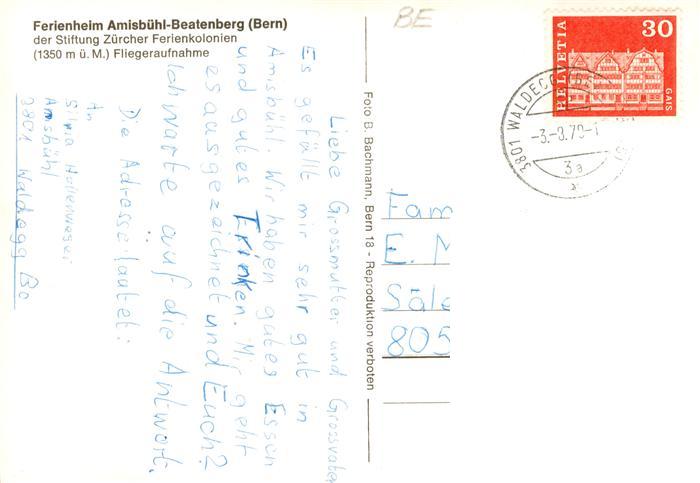 Ferienheim Amisbühl-Beatenberg (Bern)
der Stiftung Zürcher Ferienkolonien
(1350 m ü. M.) Fliegeraufnahme
BE
HELVETIA
30
GAIS
3801 WALDEGG
-3.-8.70-1
3a
Liebe Grossmutter und Grossvater
Es gefällt mir sehr gut in
Amisbühl. Wir haben gutes Essen
und gutes Trinken. Mir geht
es ausgezeichnet und Euch?
Ich warte auf die Antwort.
Die Adresse lautet:
An
Silvia
Amsbühl
3801 Waldegg Bo
Foto B. Bachmann, Bern 18 - Reproduktion verboten
Fam
E. M
Säle
805